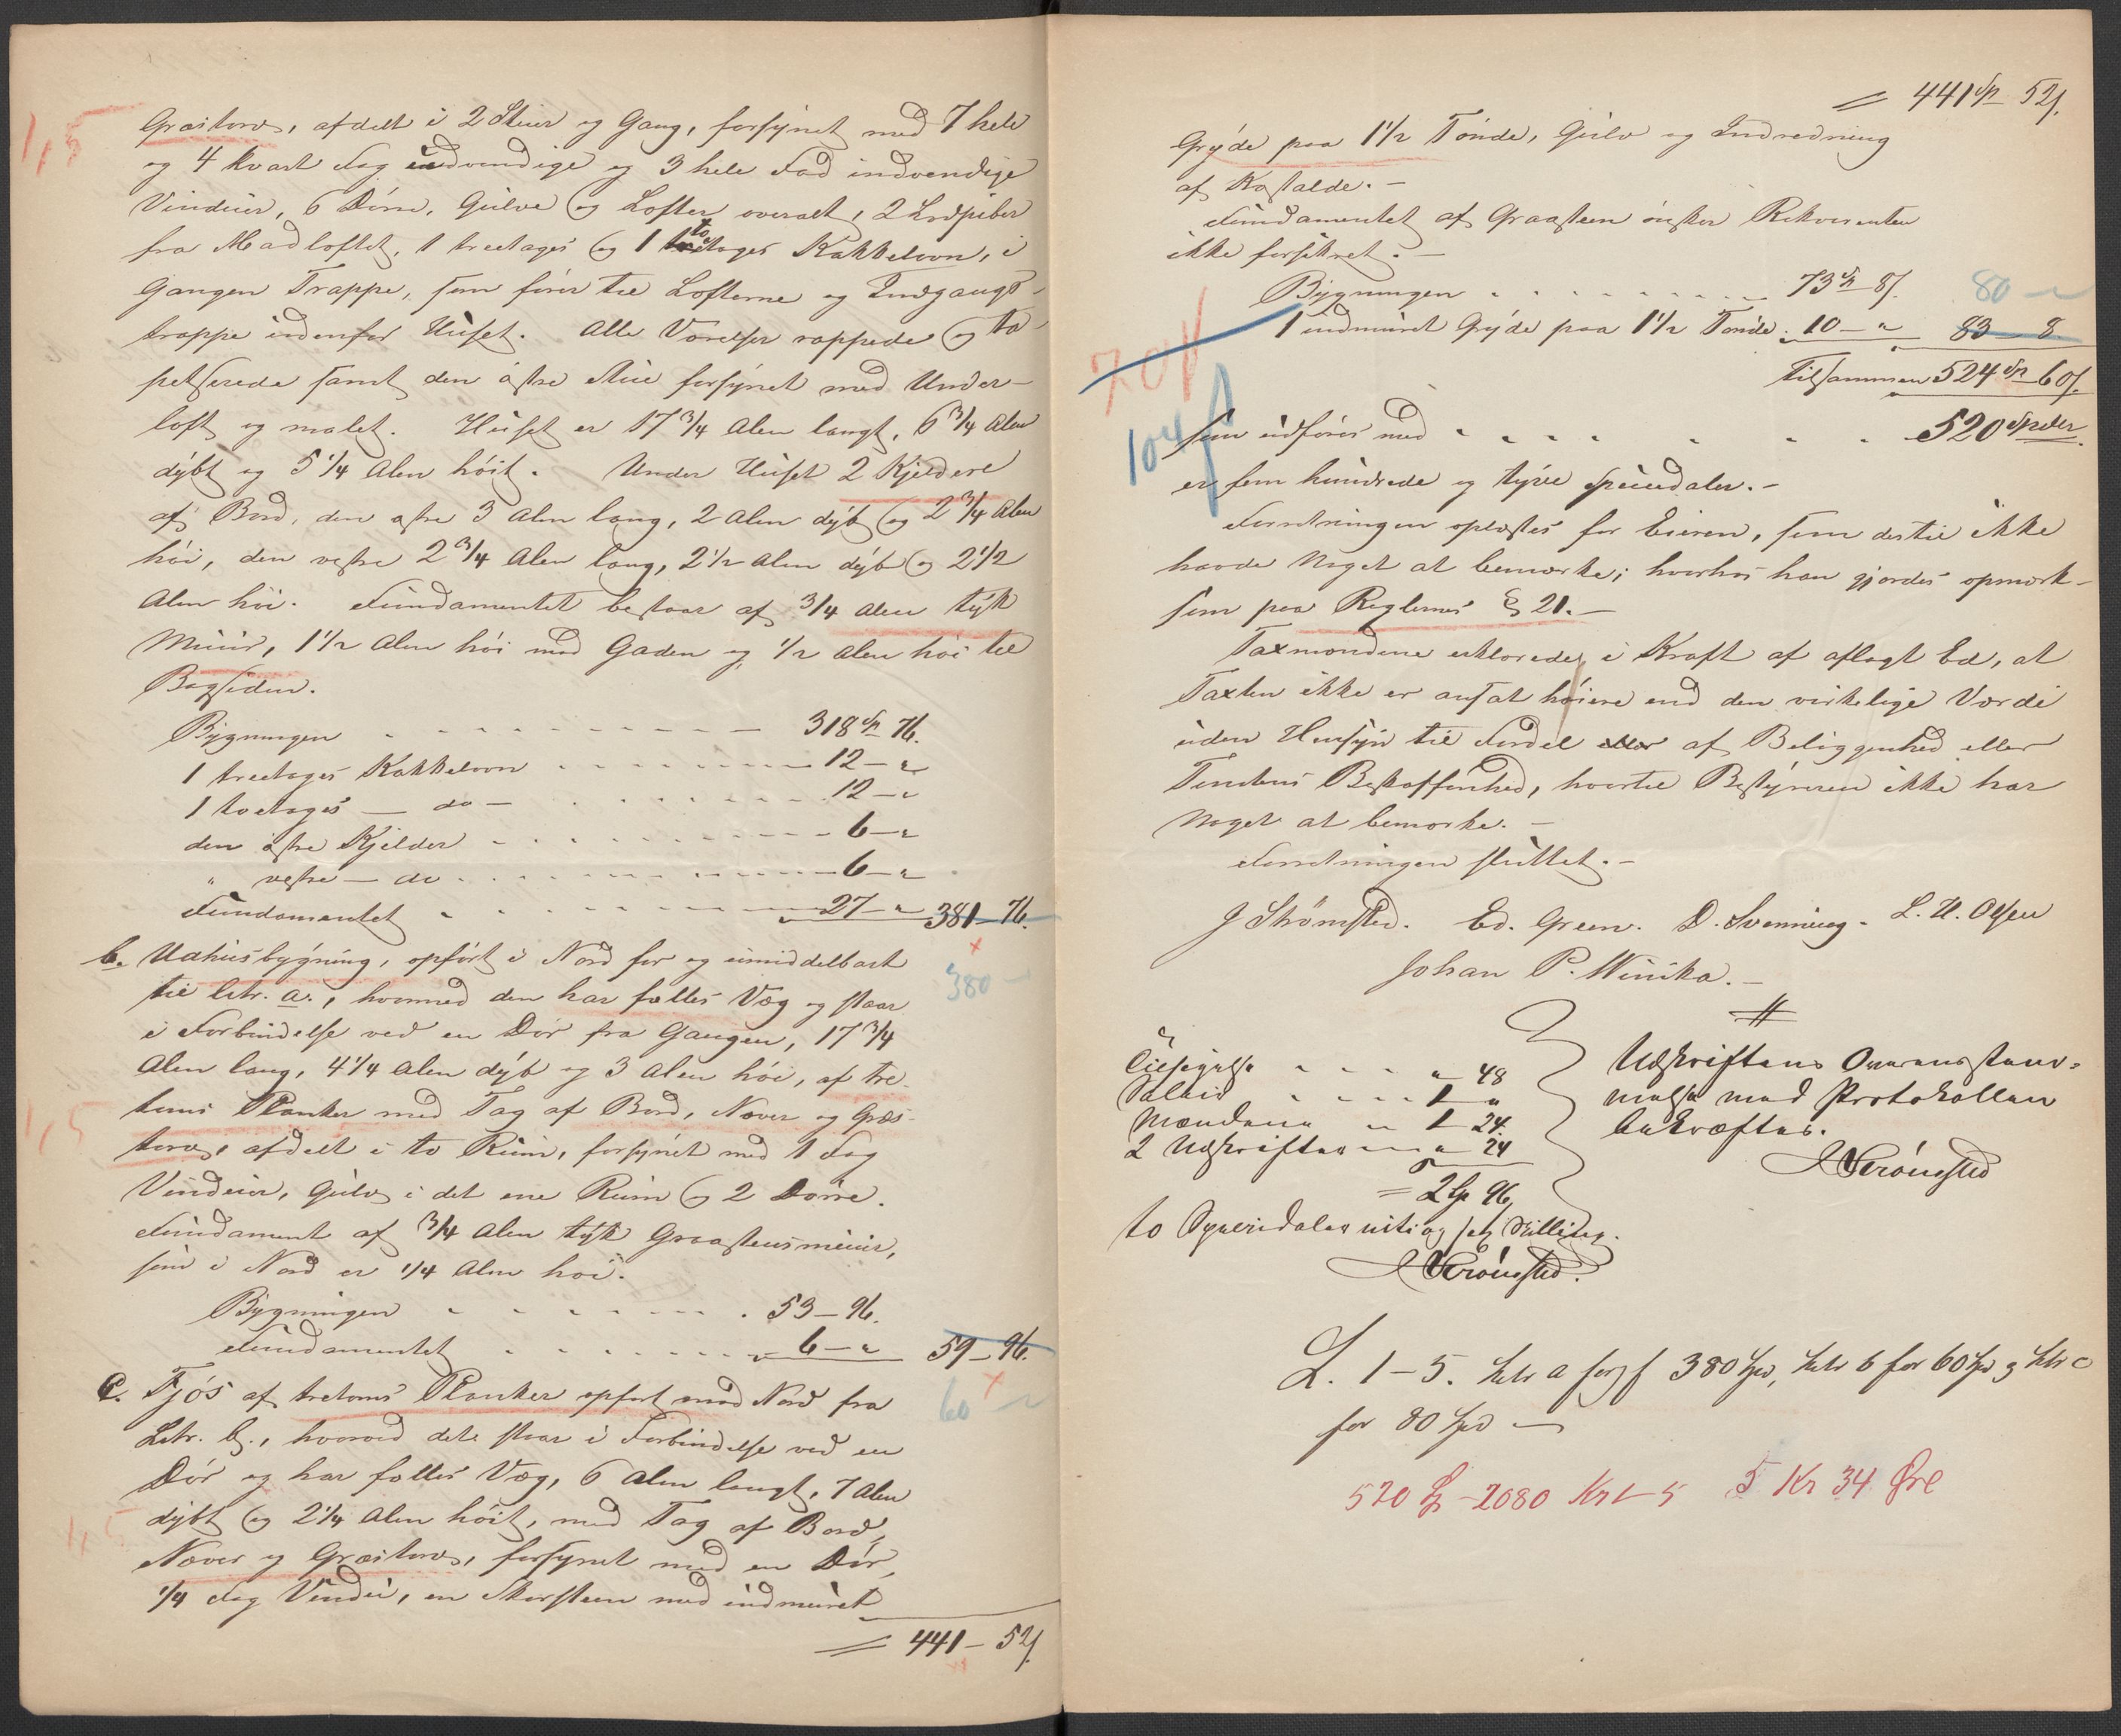 1,5
Græstorv, afdelt i 2 Stuer og Gang, forsynet med 7 hele
og 4 kvart Fag udvendige og 3 hele Fad indvendige
Vinduer, 6 Dörre, Gulve og Lofter overalt, 2 Lydpiber
fra Madloftet, 1 treetages og 1 toetages Kakkelovn, i
Gangen Trappe, som förer til Lofterne og Indgangs-
trappe indenfor Huset. Alle Værelser rappede og ta-
petserede samt den östre Stue forsynet med Under-
loft og malet. Huset er 17 3/4 Alen langt, 6 3/4 Alen
dybt og 5 1/4 Alen höit. Under Huset 2 Kjeldere
af Bord, den östre 3 Alen lang, 2 Alen dyb og 2 3/4 Alen
höi, den vestre 2 3/4 Alen lang, 2 1/2 Alen dyb og 2 1/2
Alen höi. Fundamentet bestaar af 3/4 Alen tyk
Muur, 1 1/2 Alen höi mod Gaden og 1/2 Alen höi til
Bagsiden.
Bygningen 318 Sp 76.
1 treetages Kakkelovn 12 - "
1 toetages - do - 12 - "
den östre Kjelder 6 - "
" vestre - do 6 - "
Fundamentet 27 - " 381 - 76.
380 -
b. Udhusbygning, opfört i Nord for og umiddelbart
til litr. a., hvormed den har fælles Væg og staar
i Forbindelse ved en Dör fra Gangen, 17 3/4
Alen lang, 4 1/4 Alen dyb og 3 Alen höi, af tre-
toms Planker med Tag af Bord, Næver og Græs-
torv, afdelt i to Rum, forsynet med 1 Fag
1,5
Vinduer, Gulv i det ene Rum og 2 Dörre.
Fundament af 3/4 Alen tyk Graastensmuur,
som i Nord er 1/4 Alen höi.
Bygningen 53 - 96.
Fundamentet 6 - " 59 - 96.
60 -
c. Fjös af tretoms Planker opfört mod Nord fra
Litr. b., hvorved det staar i Forbindelse ved en
Dör og har fælles Væg, 6 Alen langt, 7 Alen
dybt og 2 1/4 Alen höit, med Tag af Bord,
1,5
Næver og Græstorv, forsynet med en Dör,
1/4 Fag Vindu, en Skorsteen med indmuret
= 441 - 52 s.
= 441 Sp 52 s.
Gryde paa 1 1/2 Tönde, Gulv og Indredning
af Kostalde. -
Fundamentet af Graasteen önsker Rekvirenten
ikke forsikret. -
Bygningen 73 Sp 8 s. 80 -
1 indmuret Gryde paa 1 1/2 Tönde. 10 - " 83 - 8
Tilsammen 524 Sp 60 s.
70 s
104 s
som udföres med 520 Spdlr.
er fem hundrede og tyve Speciedaler. -
Forretningen oplæstes for Eieren, som dertil ikke
havde Noget at bemærke; hvorhos han gjordes opmærk-
som paa Reglernes § 21. -
Taxmændene erklærede, i Kraft af aflagt Ed, at
Taxten ikke er ansat höiere end den virkelige Værdi
uden Hensyn til Fordel eller af Beliggenhed eller
Tomtens Beskaffenhed, hvortil Bestyreren ikke har
Noget at bemærke. -
Forretningen sluttet. -
J Strömsted. Ed. Green. D. Svenning. L. U. Olsen
Johan P. Winika. -
Tilsigelse " 48
Salair 1 "
Mændene " 1 24.
2 Udskrifter " 24
= 2 Sp 96
to Speciedaler niti og sex Skilling.
JStrömsted.
Udskriftens Overensstem-
melse med Protokollen
bekræftes.
JStrömsted
L. 1-5. Litr a fors f 380 Spd, Litr b for 60 Spd og Litr c
for 80 Spd
520 Sp - 2080 Kr 1-5 5 Kr 34 Øre